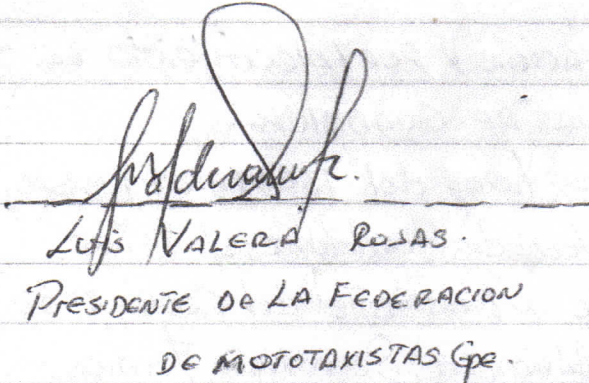 LUIS VALERA ROJAS.
PRESIDENTE DE LA FEDERACION
DE MOTOTAXISTAS Gpe.